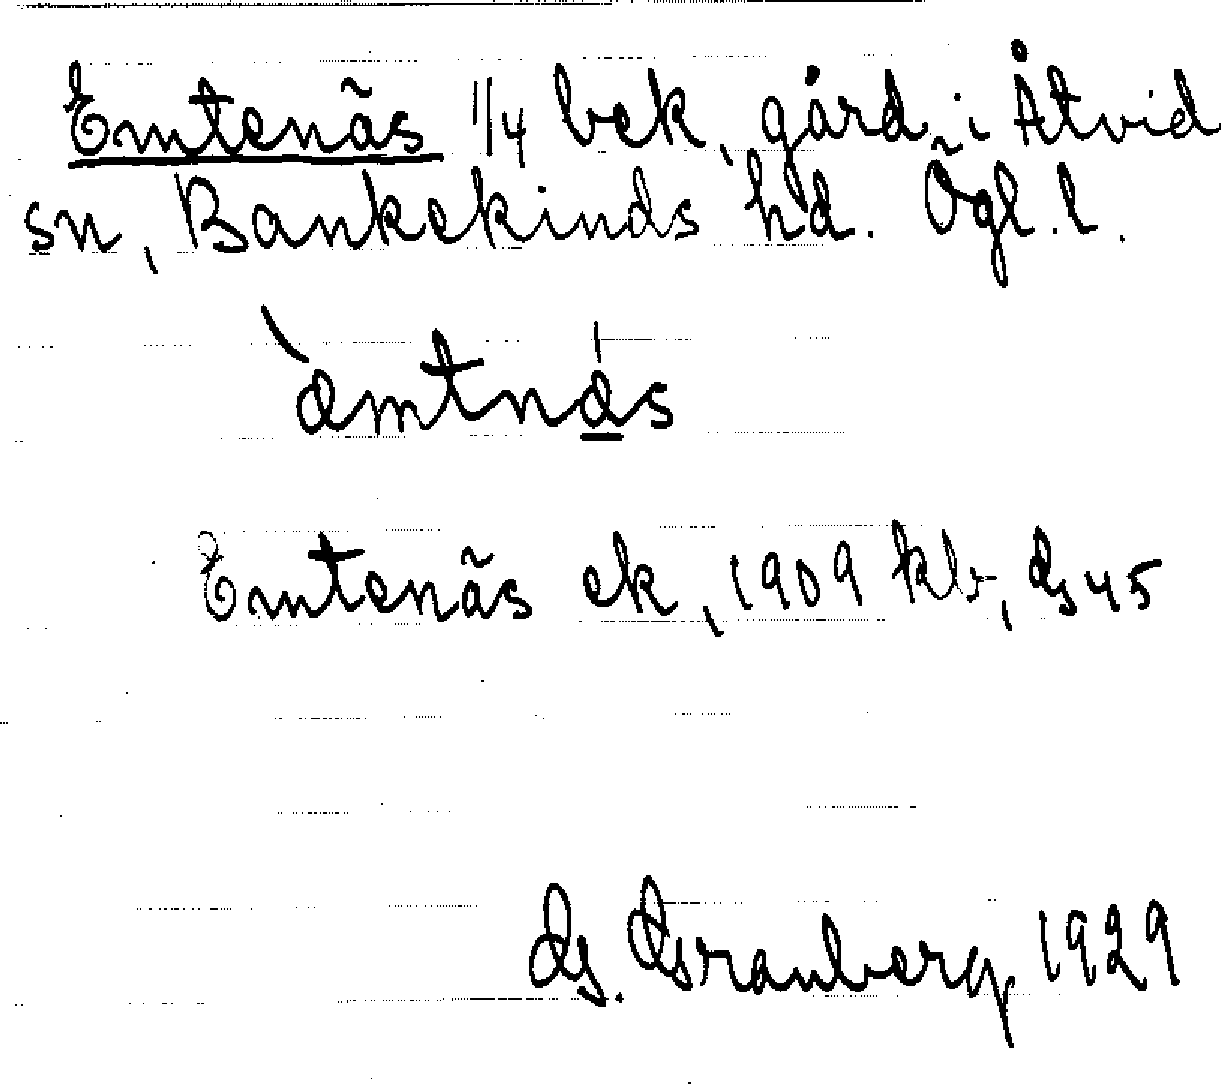 Emtenäs 1/4 bek, gård i Åtvid
sn, Bankekinds hd. Ögl.l.
àmtnás
Emtenäs ek, 1909 kb, G 45
G. Granberg 1929